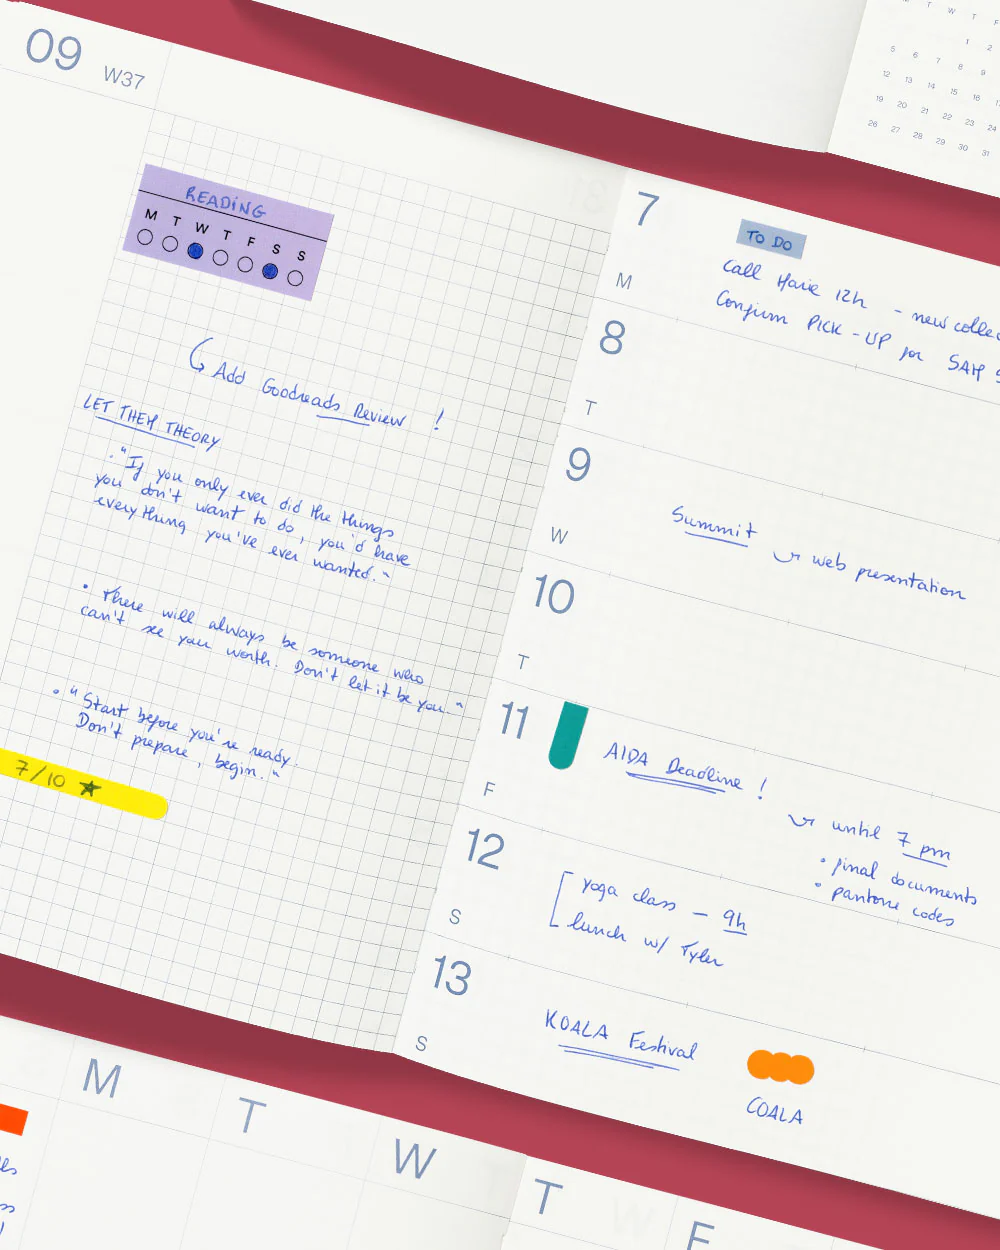 09 W37
READING
M T W T F S S
Add Goodreads Review !
LET THEM THEORY
· "If you only ever did the things
you don't want to do, you'd have
everything you've ever wanted."
• There will always be someone who
can't see your worth. Don't let it be you."
• "Start before you're ready.
Don't prepare, begin."
7/10 ★
7
M
TO DO
Call 12h - new collec
Confirm PICK-UP for SAM S
8
T
9
W
Summit
web presentation
10
T
11
F
AIDA Deadline !
until 7 pm
• final documents
• pantone codes
12
S
yoga class - 9h
lunch w/ Tyler
13
S
KOALA Festival
COALA
T W T F
1 2
5 6 7 8 9
12 13 14 15 16
19 20 21 22 23 24
26 27 28 29 30 31
M T W T F